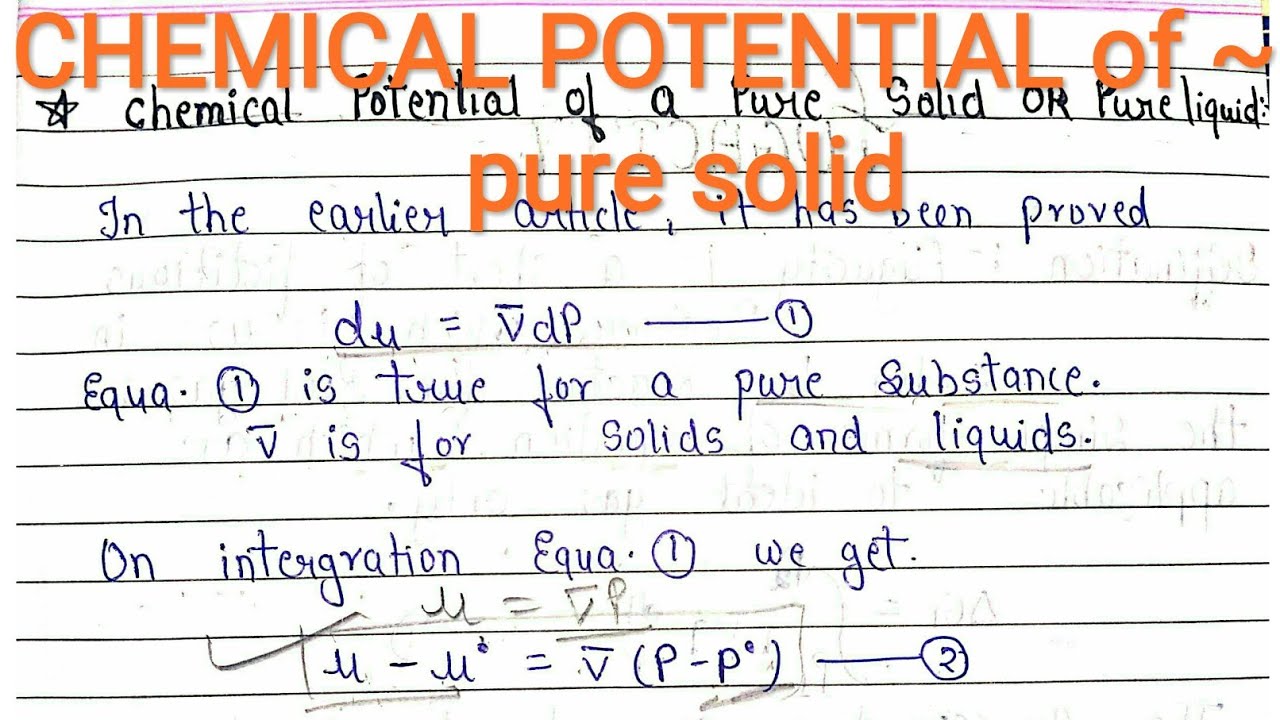 CHEMICAL POTENTIAL of ~
pure solid
☆ Chemical Potential of a Pure Solid OR Pure liquid:
In the earlier article, it has been proved
du = V̅dP —— ①
Equa. ① is true for a pure substance.
V̅ is for solids and liquids.
On intergration Equa. ① we get.
μ = V̅P
μ - μ° = V̅ (P - P°) —— ②